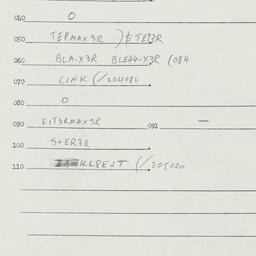 040 0
050 TEPMAX3R )$ TEP3R
060 BLA-X3R BLE44-X3R (084
070 CINK (/204080
080 0
090 FIT3RMAX3R 091 —
100 S+ER3R
110 KLPEJT (/205020